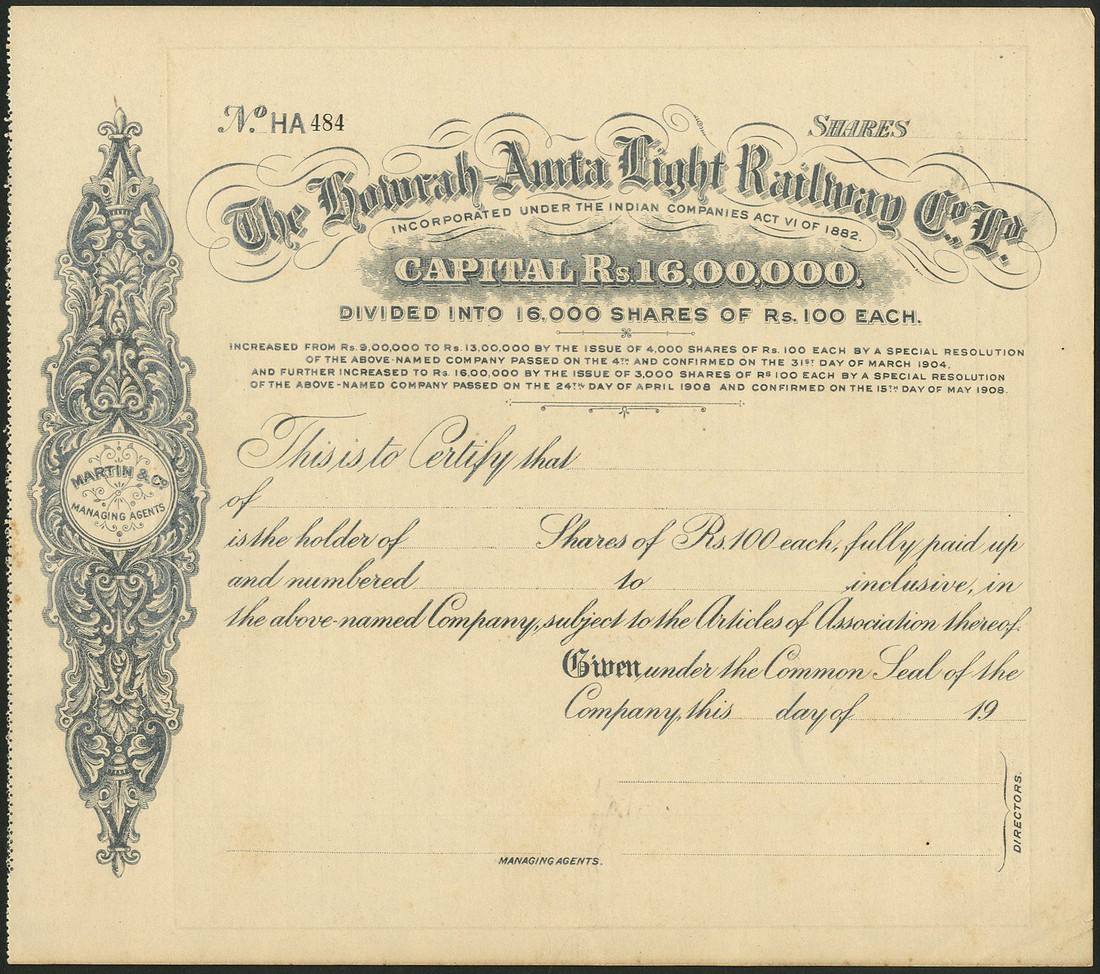 No. HA 484
SHARES
The Howrah-Amta Light Railway Co., Ld.
INCORPORATED UNDER THE INDIAN COMPANIES ACT VI OF 1882.
CAPITAL Rs. 16,00,000,
DIVIDED INTO 16,000 SHARES OF Rs. 100 EACH.
INCREASED FROM Rs. 9,00,000 TO Rs. 13,00,000 BY THE ISSUE OF 4,000 SHARES OF Rs. 100 EACH BY A SPECIAL RESOLUTION
OF THE ABOVE-NAMED COMPANY PASSED ON THE 4TH AND CONFIRMED ON THE 31ST DAY OF MARCH 1904,
AND FURTHER INCREASED TO Rs. 16,00,000 BY THE ISSUE OF 3,000 SHARES OF Rs 100 EACH BY A SPECIAL RESOLUTION
OF THE ABOVE-NAMED COMPANY PASSED ON THE 24TH DAY OF APRIL 1908 AND CONFIRMED ON THE 15TH DAY OF MAY 1908.
This is to Certify that
of
is the holder of Shares of Rs. 100 each, fully paid up
and numbered to inclusive, in
the above-named Company, subject to the Articles of Association thereof.
Given under the Common Seal of the
Company, this day of 19
DIRECTORS.
MANAGING AGENTS.
MARTIN & Co
MANAGING AGENTS